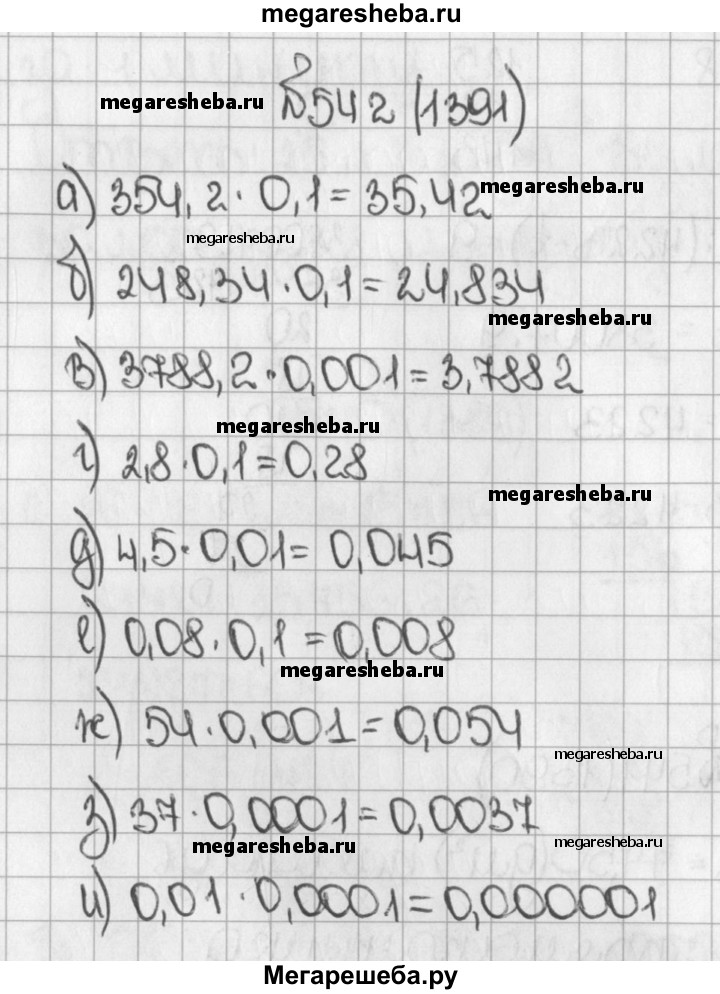 megaresheba.ru
№542 (1391)
megaresheba.ru
а) 354,2 · 0,1 = 35,42
megaresheba.ru
megaresheba.ru
б) 248,34 · 0,1 = 24,834
megaresheba.ru
в) 3788,2 · 0,001 = 3,7882
megaresheba.ru
г) 2,8 · 0,1 = 0,28
megaresheba.ru
д) 4,5 · 0,01 = 0,045
е) 0,08 · 0,1 = 0,008
megaresheba.ru
ж) 54 · 0,001 = 0,054
megaresheba.ru
з) 37 · 0,0001 = 0,0037
megaresheba.ru
megaresheba.ru
и) 0,01 · 0,0001 = 0,000001
Мегарешеба.ру